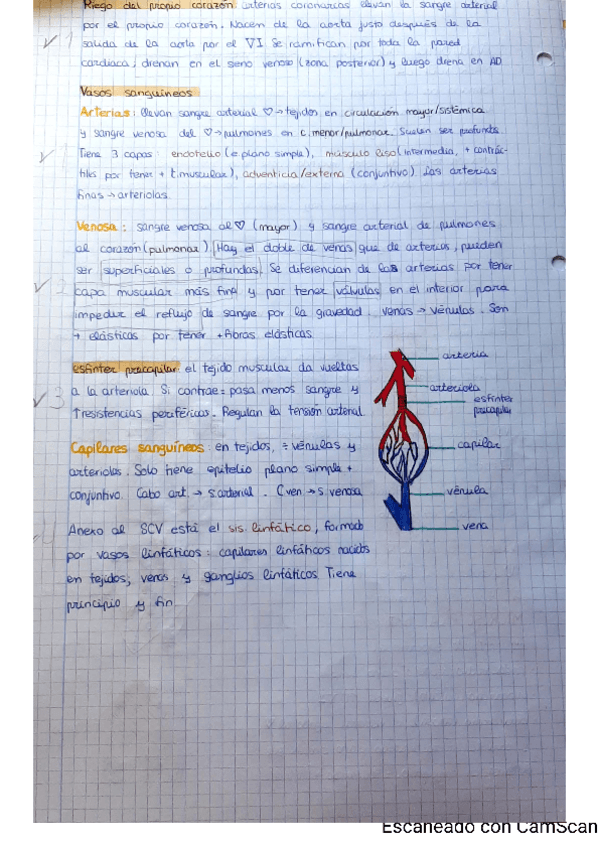 Riego del propio corazón: arterias coronarias llevan la sangre arterial
por el propio corazón. Nacen de la aorta justo después de la
salida de la aorta por el VI. Se ramifican por toda la pared
cardiaca, drenan en el seno venoso (zona posterior) y luego drena en AD
Vasos sanguíneos
Arterias: llevan sangre arterial ♡→tejidos en circulación mayor/sistémica
y sangre venosa del ♡→pulmones en c. menor/pulmonar. Suelen ser profunda
Tiene 3 capas: endotelio (e plano simple), músculo liso (intermedia, + contrác-
tiles por tener + t. muscular), adventicia/externa (conjuntivo). Las arterias
finas → arteriolas.
Venosa: sangre venosa al ♡ (mayor) y sangre arterial de pulmones
al corazón (pulmonar). Hay el doble de venas que de arterias, pueden
ser superficiales o profundas. Se diferencian de las arterias por tener
capa muscular más fina y por tener válvulas en el interior para
impedir el reflujo de sangre por la gravedad. Venas → vénulas. Son
+ elásticas por tener + fibras elásticas
esfínter precapilar: el tejido muscular da vueltas
a la arteriola. Si contrae = pasa menos sangre y
↑resistencias periféricas. Regulan la tensión arterial
Capilares sanguíneos: en tejidos, ÷ vénulas y
arteriolas. Solo tiene epitelio plano simple +
conjuntivo. Cabo art. → s. arterial. C. ven → s. venosa
Anexo al SCV está el sis linfático, formado
por vasos linfáticos: capilares linfáticos nacidos
en tejidos; venas y ganglios linfáticos. Tiene
principio y fin
arteria
arteriola
esfínter
precapilar
capilar
vénula
vena
1
2
3
Escaneado con CamScan